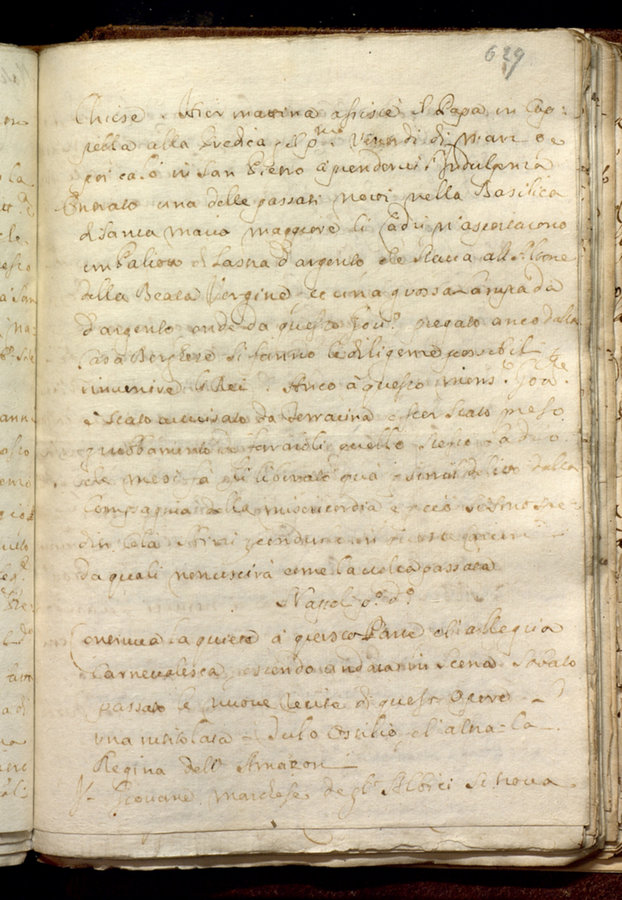 629
Chiese. Hier mattina assistè il Papa in Cap:
pella alla Predica il p.mo Venerdì di Marzo e
poi calò in San Pietro à prendervi l'Indulgenza
Entrato una delle passati notti nella Basilica
di Santa Maria Maggiore li ladri n'asportarono
un Paliotto di lastra d'argento che stava all'Altare
della Beata Vergine et una grossa lampada
d'argento onde da questo pregato anco dalla
Casa Borghese si fanno le diligenze possibili
invenire li Rei. Anco à questo mons.r
è stato avvisato da Terracina esser stato preso
quello stesso ladro
che mesi fà fu liberato quà dalla
Compagnia della Misericordia e
di colà
da quali non uscirà come la volta passata
Napoli p.o d.o
Continua la quiete à questa Parte e l'allegria
Carnevalesca essendo andata in Scena Sabato
passato le nuove recite di queste Opere
una intitolata = Tulo Ostilio e l'altra = La
Regina dell'Amazoni
Il Giovane Marchese degl'Albizi si trova